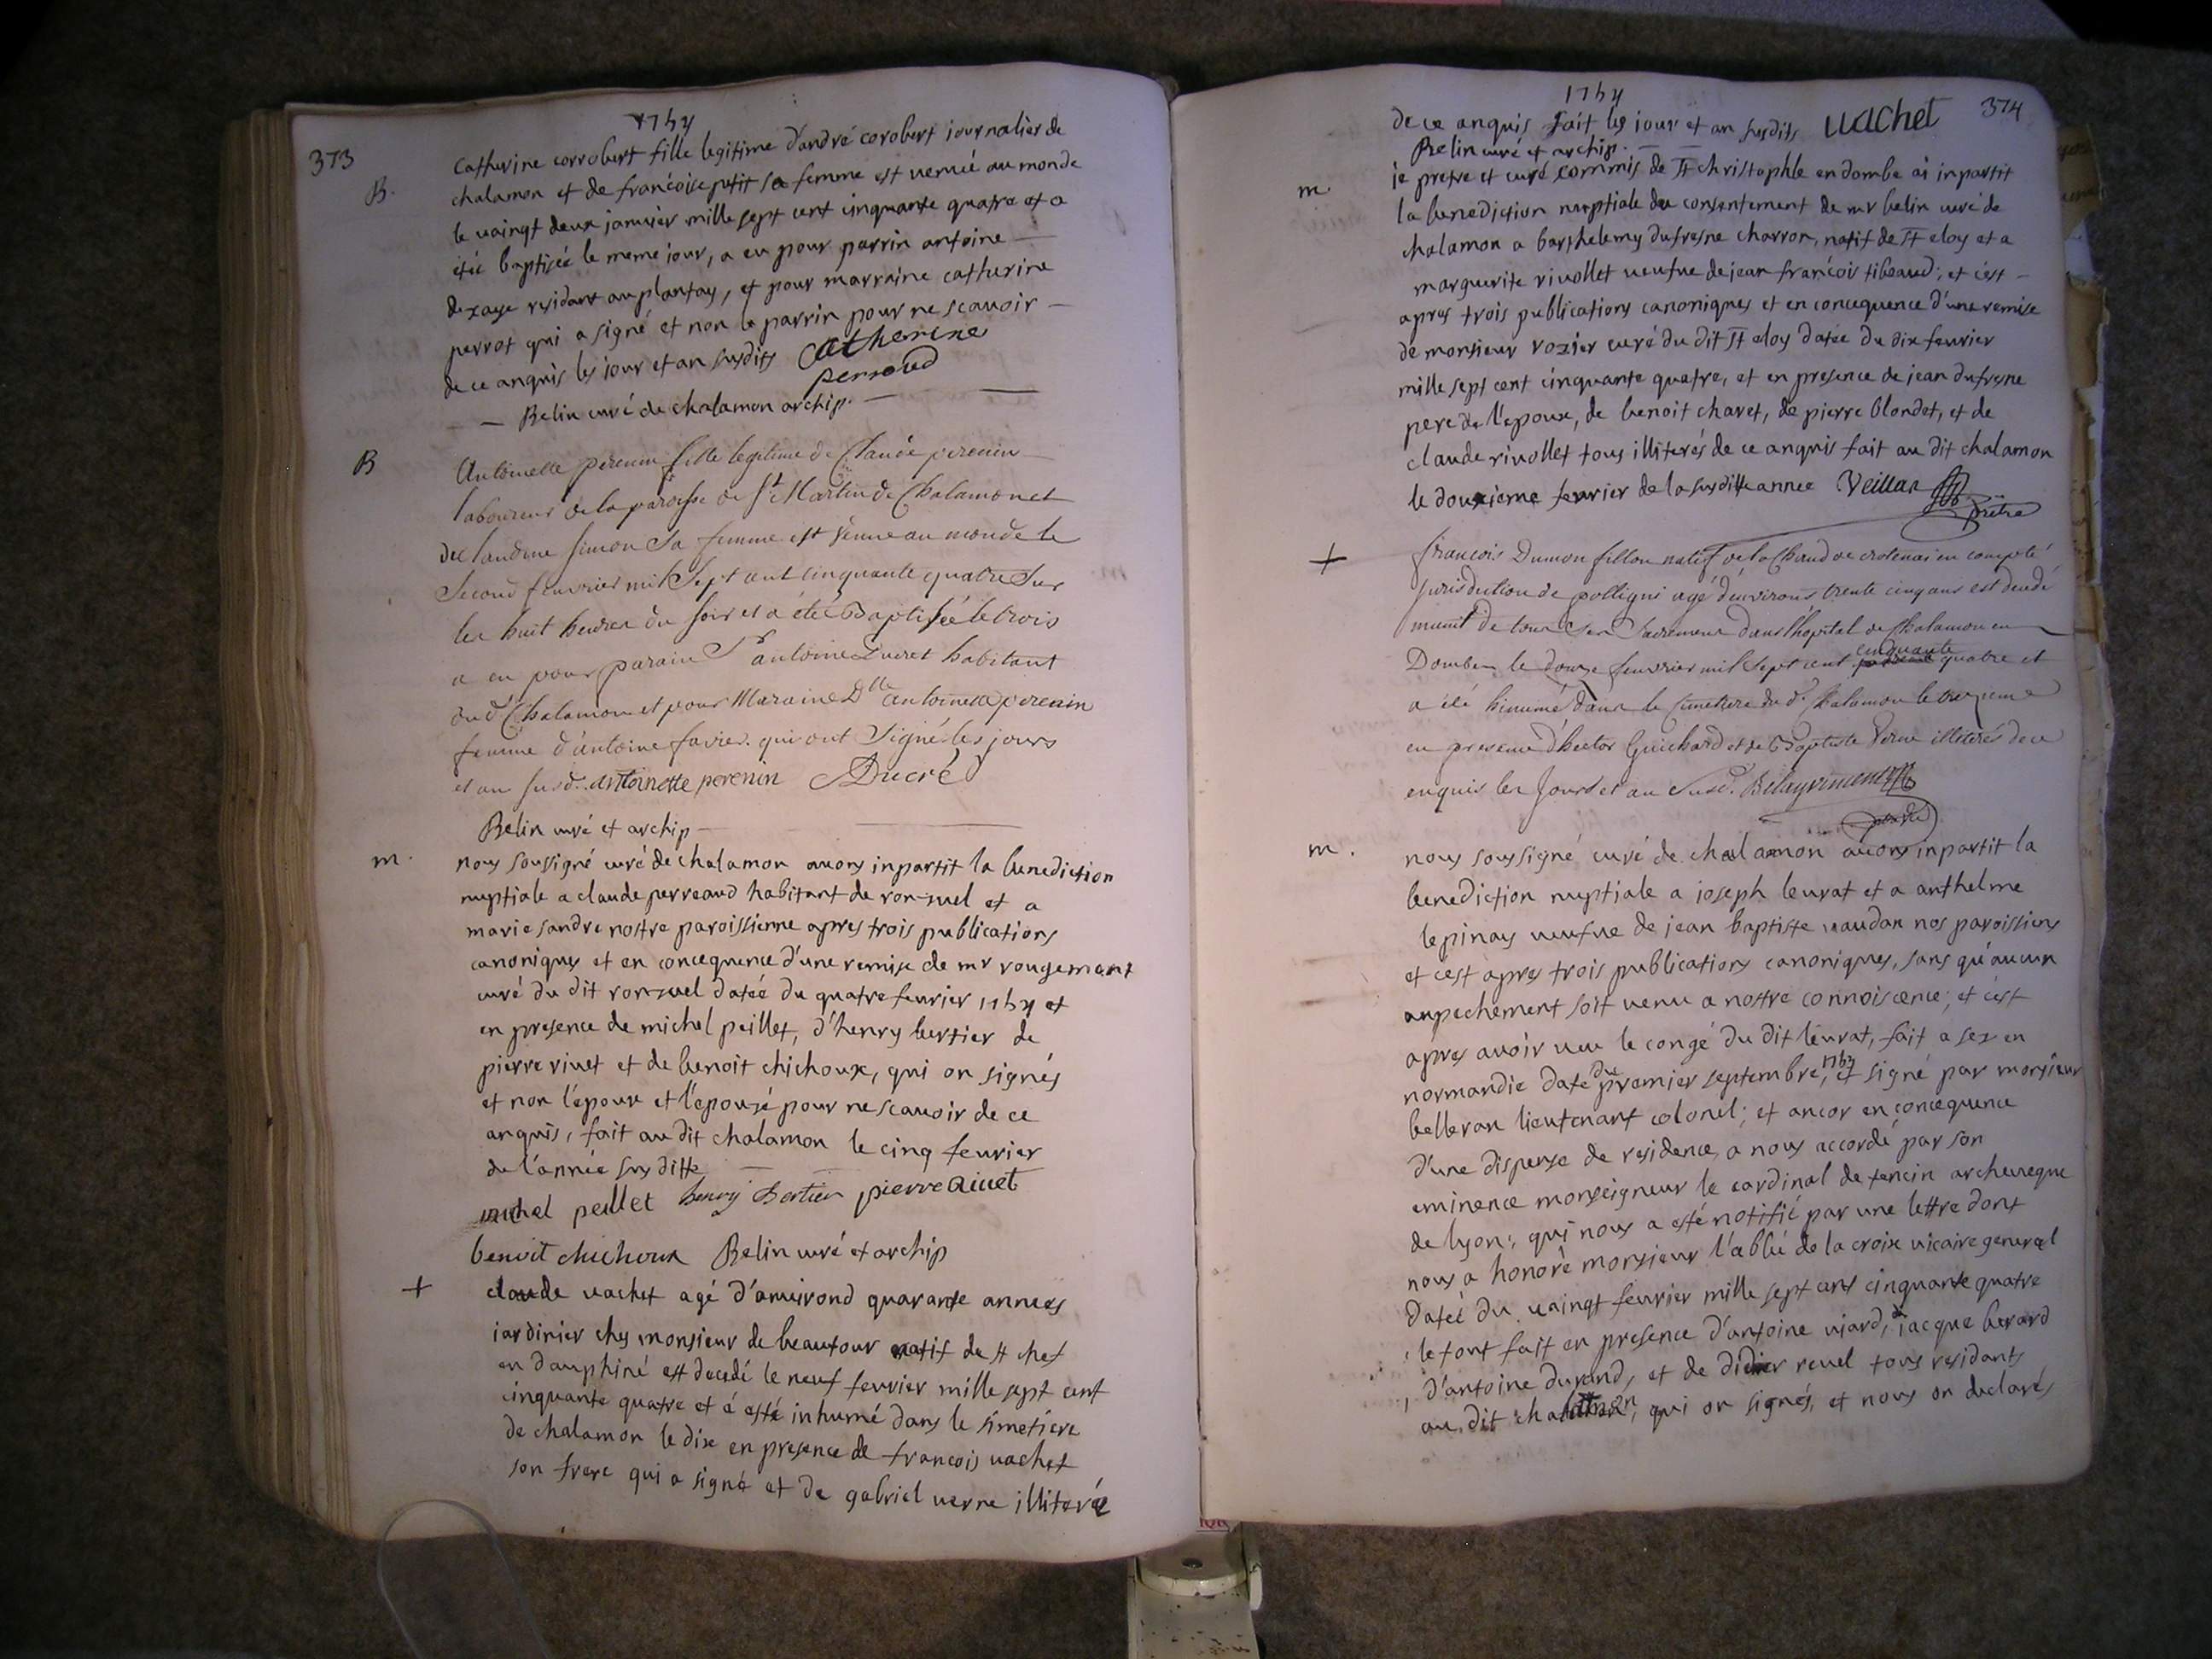 373
1754
B.
catherine corrobert fille legitime d'andré corobert journalier de
chalamon et de francoise petit sa femme est venuë au monde
le vaingt deux janvier mille sept cent cinquante quatre et a
étée baptiséé le meme jour, a eu pour parrin antoine
residant au plantay, et pour marraine catherine
perrot qui a signé et non le parrin pour ne scavoir
de ce anquis les jour et an susdits Catherine
perroud
Belin curé de chalamon archip.
B
Antoinette perenin fille legitime de Claude perenin
laboureur de la paroisse de St Martin de Chalamon et
de laudine simon sa femme est venue au monde le
second feuvrier mil sept cent cinquante quatre sur
les huit heures du soir et a été Baptisée le trois
a eu pour parain Sr antoine Ducret habitant
du d. Chalamon et pour Maraine Dlle antoinette perenin
femme d'antoine favier qui ont signé les jours
et an susd. antoinette perenin Ducré
Belin curé et archip
m.
nous soussigné curé de chalamon avons inpartit la benediction
nuptiale a claude perreaud habitant de ronzuel et a
marie sandre nostre paroissienne apres trois publications
canoniques et en concequence d'une remise de mr rougemant
curé du dit ronzuel datéé du quatre fevrier 1754 et
en presence de michel peillet, d'henry bertier de
pierre rivet et de benoit chichoux, qui on signés
et non l'epoux et l'epousé pour ne scavoir de ce
anquis, fait au dit chalamon le cinq fevrier
de l'année susditte
michel peillet henry Bertier pierre Rivet
benoit chichoux Belin curé et archip
+
claude vachet agé d'anvirond quarante annees
jardinier ches monsieur de beautour natif de st chef
en dauphiné est decedé le neuf fevrier mille sept cent
cinquante quatre et a esté inhumé dans le simetiere
de chalamon le dix en presence de francois vachet
son frere qui a signé et de gabriel verne illiteré
1754
374
de ce anquis fait les jour et an susdits vachet
Belin curé et archip.
m
je pretre et curé commis de St christophle en dombe ai inpartit
la benediction nuptiale du consentement de mr belin curé de
chalamon a barthelemy dufresne charron, natif de St eloy et a
marguerite rivollet veufve de jean françois tibeaud; et c'est
apres trois publications canoniques et en concequence d'une remise
de monsieur rozier curé du dit St eloy datéé du dix fevrier
mille sept cent cinquante quatre, et en presence de jean dufresne
pere de l'epoux, de benoit chavet, de pierre blondet, et de
claude rivollet tous illiterés de ce anquis fait au dit chalamon
le douxieme fevrier de la susditte annee Veillas
prêtre
+
francois Dumon fillon natif de la Chaud de crotenai en compté
jurisdiction de polligni agé d'environs trente cinq ans est decedé
munit de tous ses sacremens dans l'hopital de Chalamon en
Dombes le douze feuvrier mil sept cent cinquante quatre et
a été hinumé dans le simetiere du d. Chalamon le treizieme
en presence d'hector Guichard et de Baptiste Verne illiterés de ce
enquis les jours et an susd.
m.
nous soussigné curé de chalamon avons inpartit la
benediction nuptiale a joseph leurat et a anthelme
lepinay veufve de jean baptiste vaudan nos paroissiens
et c'est apres trois publications canoniques, sans qu'aucun
anpechement soit venu a nostre connoiscence; et c'est
apres avoir veu le congé du dit leurat, fait a sez en
normandie daté du premier septembre, 1754 et signé par monsieur
belleran lieutenant colonel; et ancor en concequence
d'une dispense de residence, a nous accordé par son
eminence monseigneur le cardinal de tencin archeveque
de lyon, qui nous a esté notifié par une lettre dont
nous a honoré monsieur l'abbé de la croix vicaire general
datéé du vaingt fevrier mille sept cent cinquante quatre
le tout fait en presence d'antoine viard, de jacque berard
d'antoine durand, et de didier revel tous residants
au dit chalamon, qui on signés, et nous on declarés